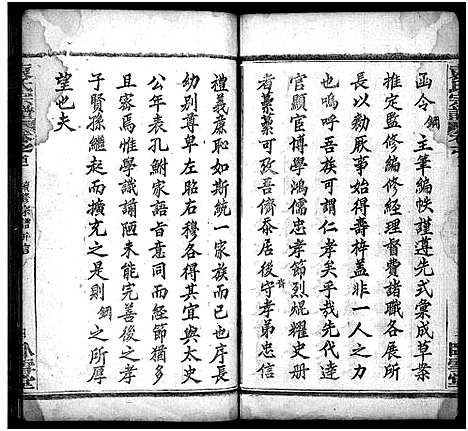 函令鋼主筆編帙謹遵先式彙成草案
推定監修編修經理督費諸房各展
長以勷厥事壽梓蓋非一人之力
也嗚呼吾族可謂仁孝矣乎哉先代達
官顯宦博學鴻儒忠孝節烈焜耀史册
者纍纍可攷吾儕忝居後守孝弟忠信
禮義廉恥如斯統一家族而已也序長
幼別尊卑左昭右穆各得其宜與太史
公年表孔鮒家語吾意同而經節猶多
且密焉惟學識謭陋未能完善後之孝
子賢孫繼起而擴充之是則鋼之所厚
望也夫